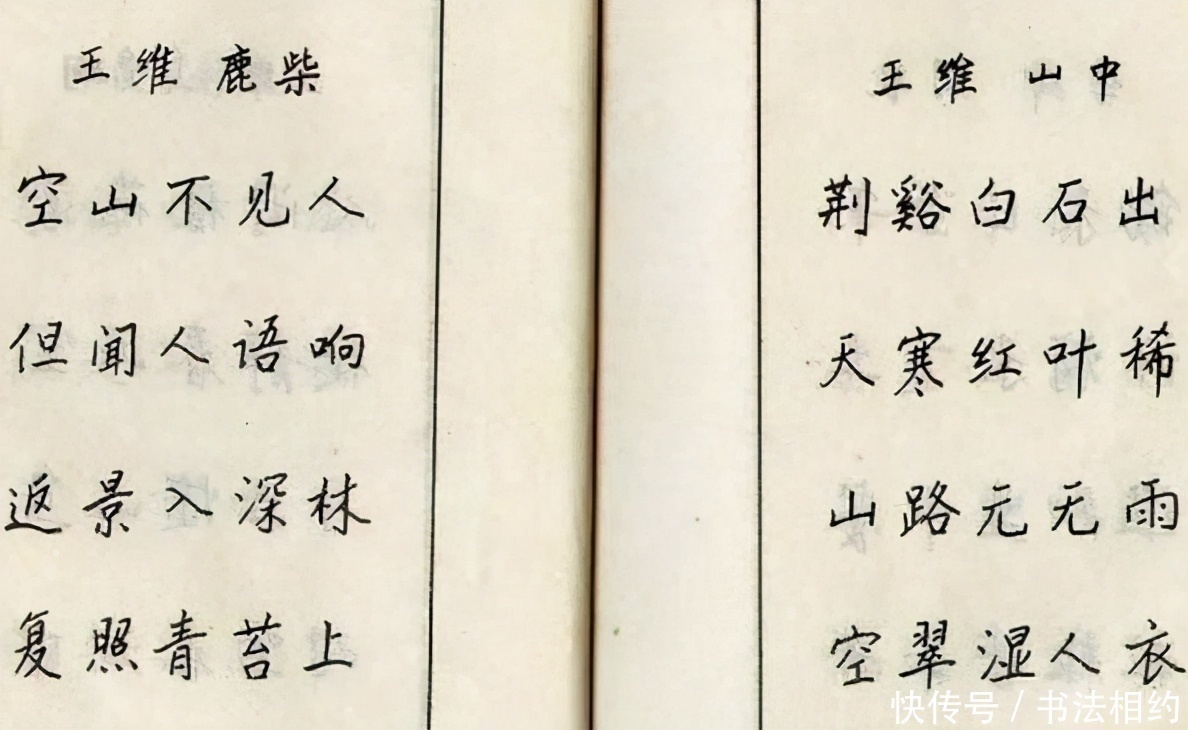 王维 鹿柴
空山不见人
但闻人语响
返景入深林
复照青苔上
王维 山中
荆谿白石出
天寒红叶稀
山路元无雨
空翠湿人衣
快传号 / 书法相约